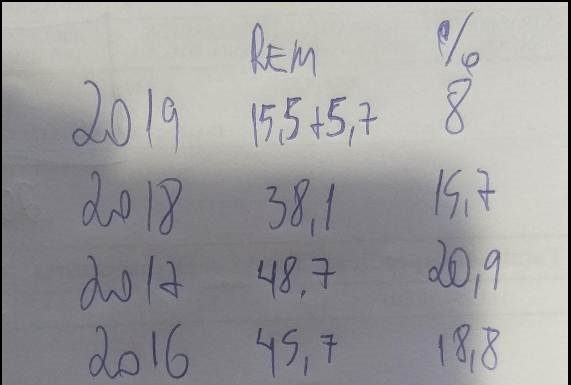 REM %
2019 15,5+5,7 8
2018 38,1 15,7
2017 48,7 20,9
2016 45,7 18,8